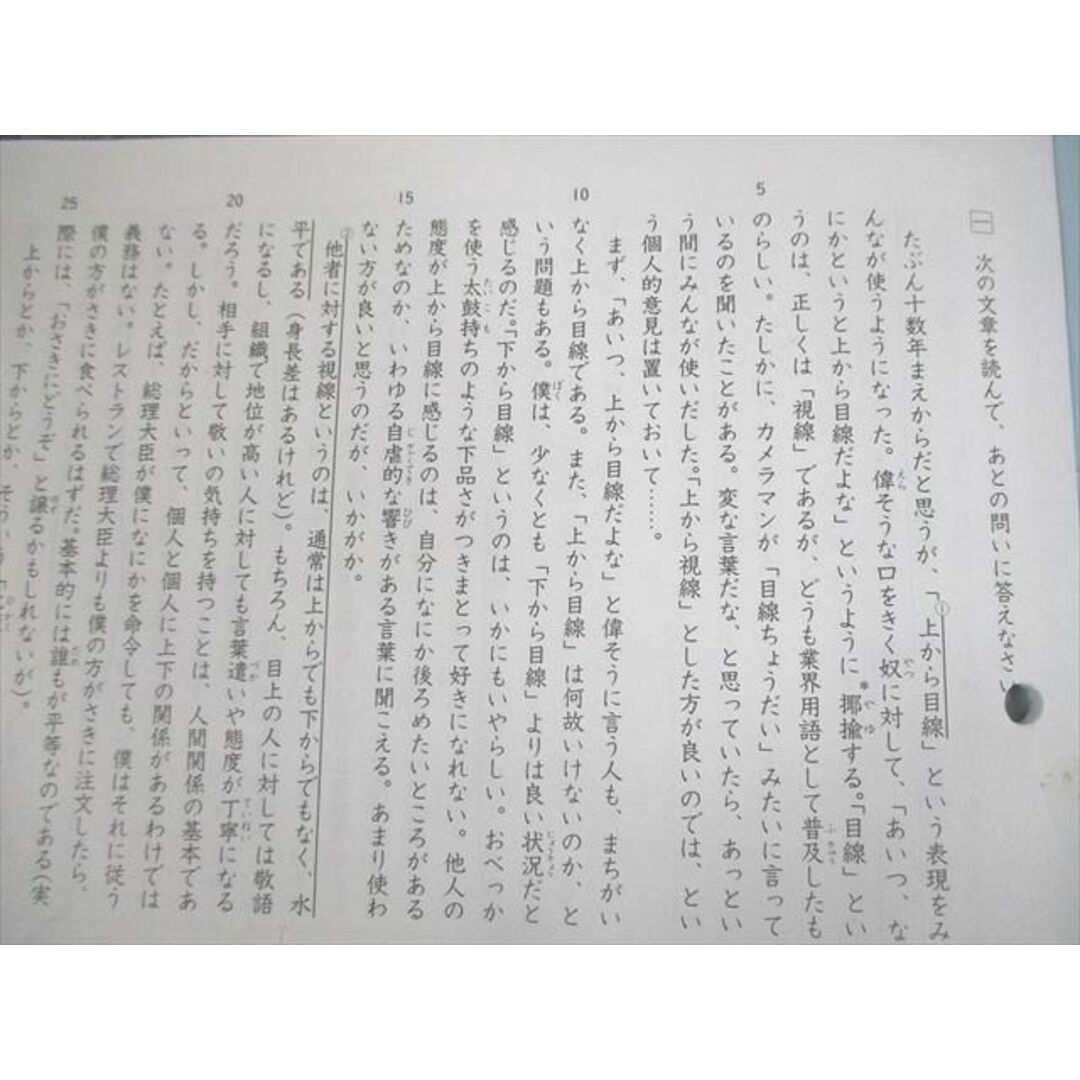 一 次の文章を読んで、あとの問いに答えなさい
たぶん十数年まえからだと思うが、「①上から目線」という表現をみ
んなが使うようになった。偉そうな口をきく奴に対して、「あいつ、な
にかというと上から目線だよな」というように*揶揄する。「目線」とい
うのは、正しくは「視線」であるが、どうも業界用語として普及したも
5 のらしい。たしかに、カメラマンが「目線ちょうだい」みたいに言って
いるのを聞いたことがある。変な言葉だな、と思っていたら、あっとい
う間にみんなが使いだした。「上から視線」とした方が良いのでは、とい
う個人的意見は置いておいて……。
まず、「あいつ、上から目線だよな」と偉そうに言う人も、まちがい
10 なく上から目線である。また、「上から目線」は何故いけないのか、と
いう問題もある。僕は、少なくとも「下から目線」よりは良い状況だと
感じるのだ。「下から目線」というのは、いかにもいやらしい。おべっか
を使う太鼓持ちのような下品さがつきまとって好きになれない。他人の
態度が上から目線に感じるのは、自分になにか後ろめたいところがある
15 ためなのか、いわゆる自虐的な響きがある言葉に聞こえる。あまり使わ
ない方が良いと思うのだが、いかがか。
②他者に対する視線というのは、通常は上からでも下からでもなく、水
平である(身長差はあるけれど)。もちろん、目上の人に対しては敬語
になるし、組織で地位が高い人に対しても言葉遣いや態度が丁寧になる
20 だろう。相手に対して敬いの気持ちを持つことは、人間関係の基本であ
る。しかし、だからといって、個人と個人に上下の関係があるわけでは
ない。たとえば、総理大臣が僕になにかを命令しても、僕はそれに従う
義務はない。レストランで総理大臣よりも僕の方がさきに注文したら、
僕の方がさきに食べられるはずだ。基本的には誰もが平等なのである(実
25 際には、「おさきにどうぞ」と譲るかもしれないが)。
上からとか、下からとか、そういう